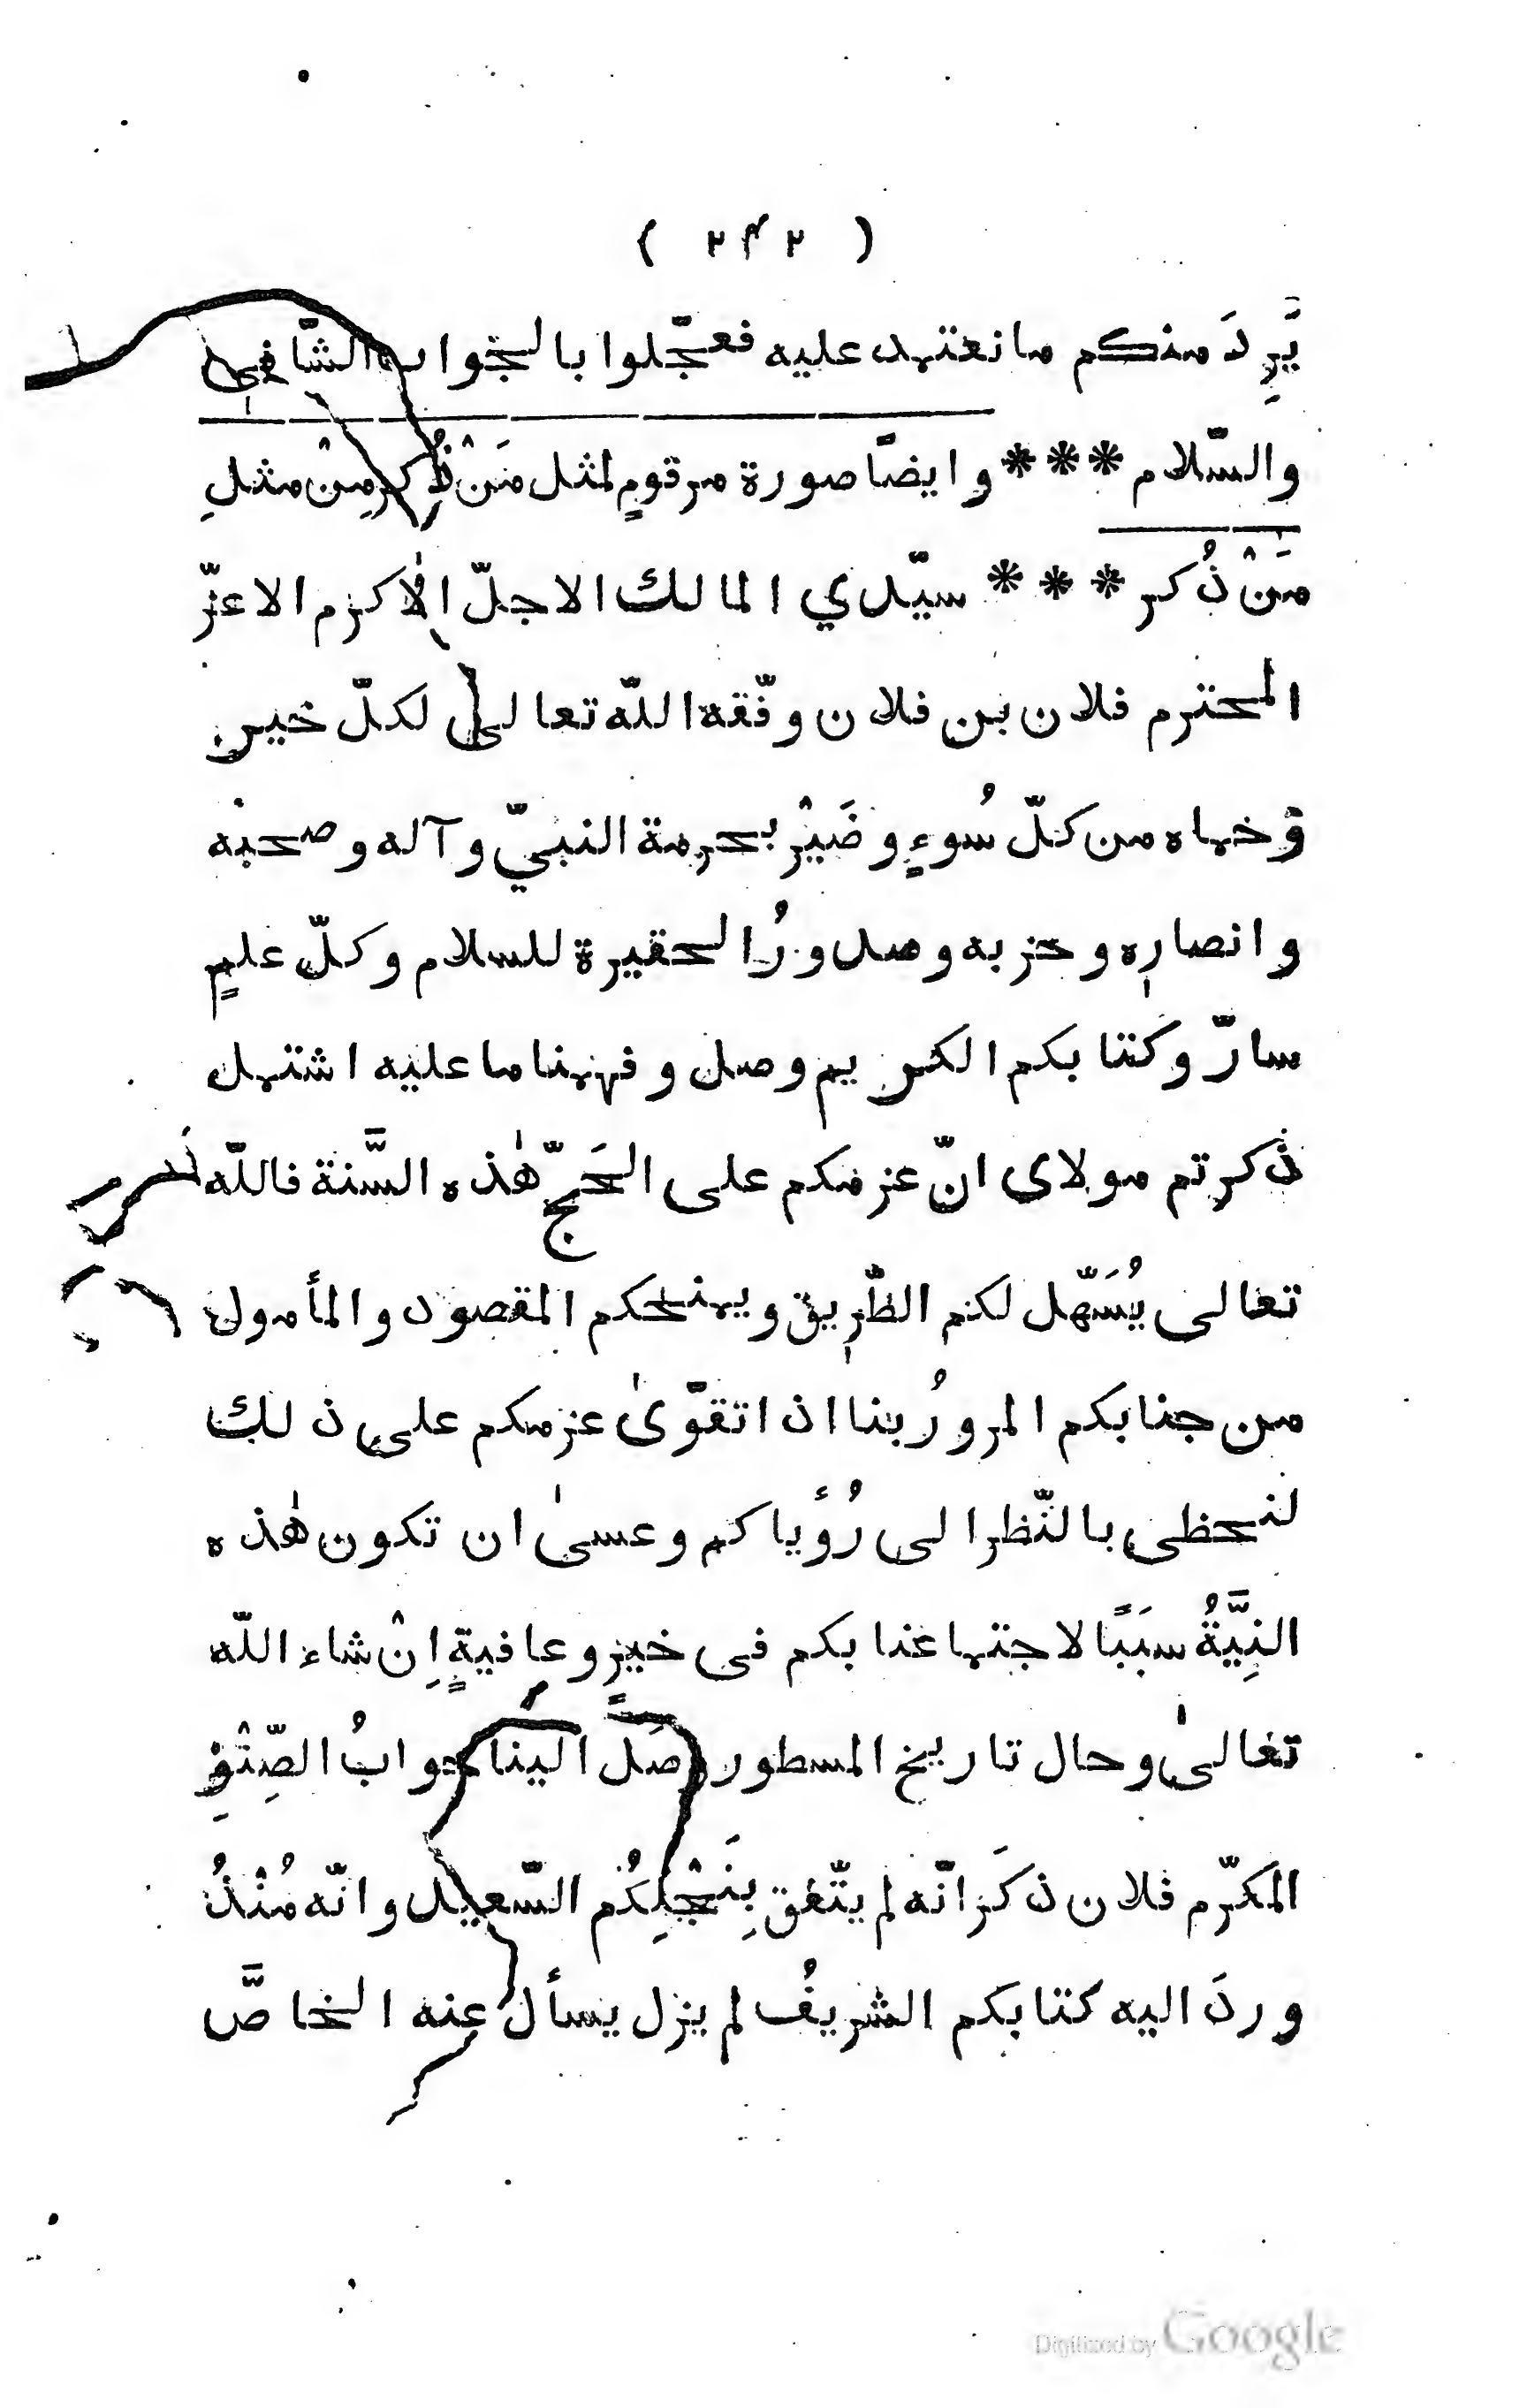 ( ٢٤٢ )
يَّرِدَ منكم ما نعتمد عليه فعجّلوا بالجواب الشّافي
والسّلام *** وايضًا صورة مرقومٍ لمثل مَنْ ذُكِر مِنْ مثلِ
مَنْ ذُكر *** سيّدي المالك الاجلّ الاكرم الاعزّ
المحترم فلان بن فلان وفّقه اللّه تعالى لكلّ خير
وحماه من كلّ سُوءٍ وضَيْر بحرمة النبيّ وآله وصحبه
وانصاره وحزبه وصدورُ الحقيرة للسلام وكلّ علمٍ
سارّ وكتابكم الكريم وصل وفهمنا ما عليه اشتمل
ذكرتم مولاى انّ عزمكم على الحَجّ هٰذه السَّنة فاللّه
تعالى يُسَهّل لكم الطّريق ويمنحكم المقصود والمأمول
من جنابكم المرورُ بنا اذا تقوّىٰ عزمكم على ذلك
لنحظى بالنّظر الى رُؤياكم وعسىٰ ان تكون هٰذه
النِيَّةُ سبَبًا لاجتماعنا بكم فى خيرٍ وعافيةٍ اِنْ شاء اللّه
تعالىٰ وحال تاريخ المسطور وصَلَ الينا جوابُ الصِّنْوِ
المكرّم فلان ذكَر انّه لم يتّفق بِنَجْلِكُم السّعيد وانّه مُنْذُ
وردَ اليه كتابكم الشريفُ لم يزل يسأل عنه الخاصَّ
Digitized by Google